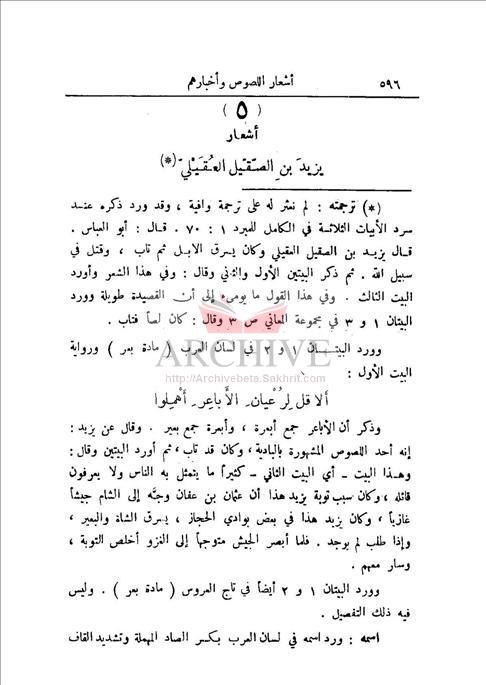 ٥٩٦
أشعار اللصوص وأخبارهم
( ٥ )
أشعار
يزيدَ بنِ الصِّقِّيلِ العُقَيْليّ (*)
(*) ترجمته : لم نعثر له على ترجمة وافية ، وقد ورد ذكره عند
سرد الأبيات الثلاثة في الكامل للمبرد ١ : ٧٠ . قال : أبو العباس .
قال يزيد بن الصقيل العقيلي وكان يسرق الابل ثم تاب ، وقتل في
سبيل الله . ثم ذكر البيتين الأول والثاني وقال : وفي هذا الشعر وأورد
البيت الثالث . وفي هذا القول ما يومىء إلى أن القصيدة طويلة وورد
البيتان ١ و ٣ في مجموعة المعاني ص ٣ وقال : كان لصاً فتاب .
وورد البيتان ١ و ٢ في لسان العرب ( مادة بعر ) ورواية
البيت الأول :
ألا قل لرُعْيان الأباعِرِ أهْمِلوا
وذكر أن الأباعر جمع أبعرة ، وأبعرة جمع بعير . وقال عن يزيد :
إنه أحد اللصوص المشهورة بالبادية ، وكان قد تاب ، ثم أورد البيتين وقال :
وهذا البيت – أي البيت الثاني – كثيراً ما يتمثل به الناس ولا يعرفون
قائله ، وكان سبب توبة يزيد هذا أن عثمان بن عفان وجَّه إلى الشام جيشاً
غازياً ، وكان يزيد هذا في بعض بوادي الحجاز ، يسرق الشاة والبعير ،
وإذا طلب لم يوجد . فلما أبصر الجيش متوجهاً إلى الغزو أخلص التوبة ،
وسار معهم .
وورد البيتان ١ و ٢ أيضاً في تاج العروس ( مادة بعر ) . وليس
فيه ذلك التفصيل .
اسمه : ورد اسمه في لسان العرب بكسر الصاد المهملة وتشديد القاف
ARCHIVE
http://Archivebeta.Sakhrit.com